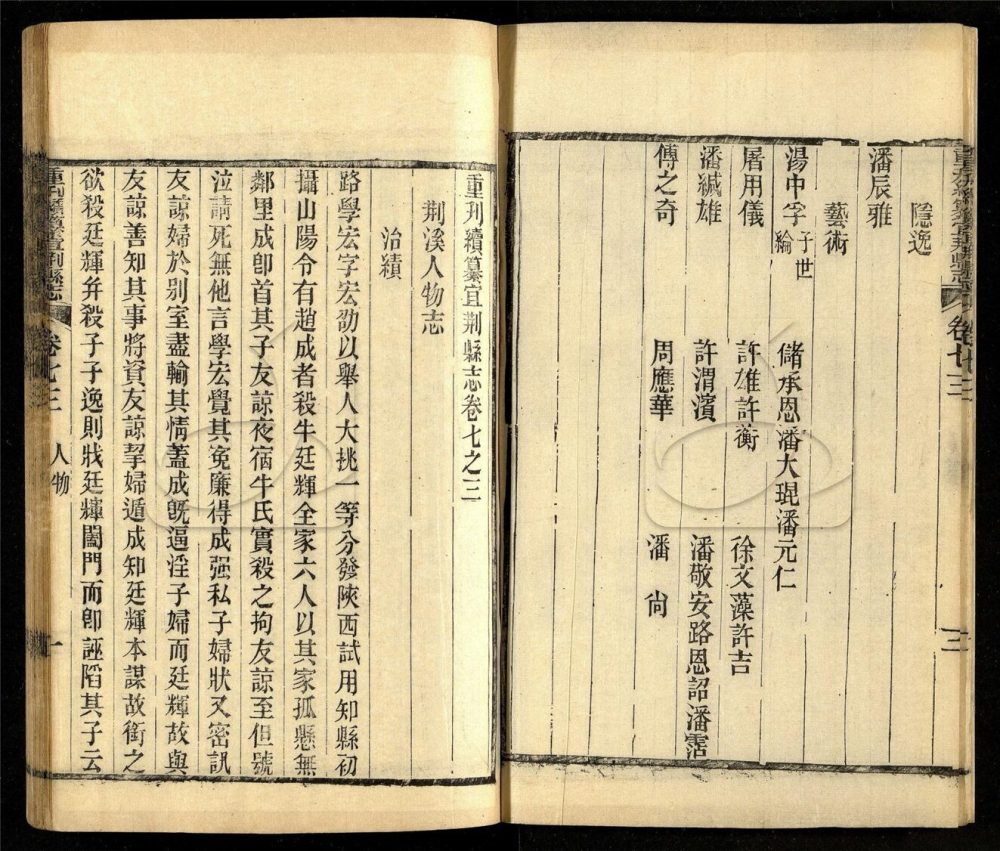 隱逸
潘辰雅
藝術
湯中孚子世綸 儲承恩潘大琨潘元仁
屠用儀 許雄許衡 徐文藻許吉
潘緘雄 許渭濱 潘敬安路恩詔潘霑
傅之奇 周應華 潘尙
重刊續纂宜荆縣志 卷七之三 三
重刊續纂宜荆縣志卷七之三
荆溪人物志
治績
路學宏字宏劭以舉人大挑一等分發陜西試用知縣初
攝山陽令有趙成者殺牛廷輝全家六人以其家孤懸無
鄰里成卽首其子友諒夜宿牛氏實殺之拘友諒至但號
泣請死無他言學宏覺其寃廉得成强私子婦狀又密訊
友諒婦於别室盡輸其情蓋成旣逼淫子婦而廷輝故與
友諒善知其事將資友諒挈婦遁成知廷輝本謀故銜之
欲殺廷輝幷殺子子逸則戕廷輝闔門而卽誣陷其子云
重刊續纂宜荆縣志 卷七之三 人物 一